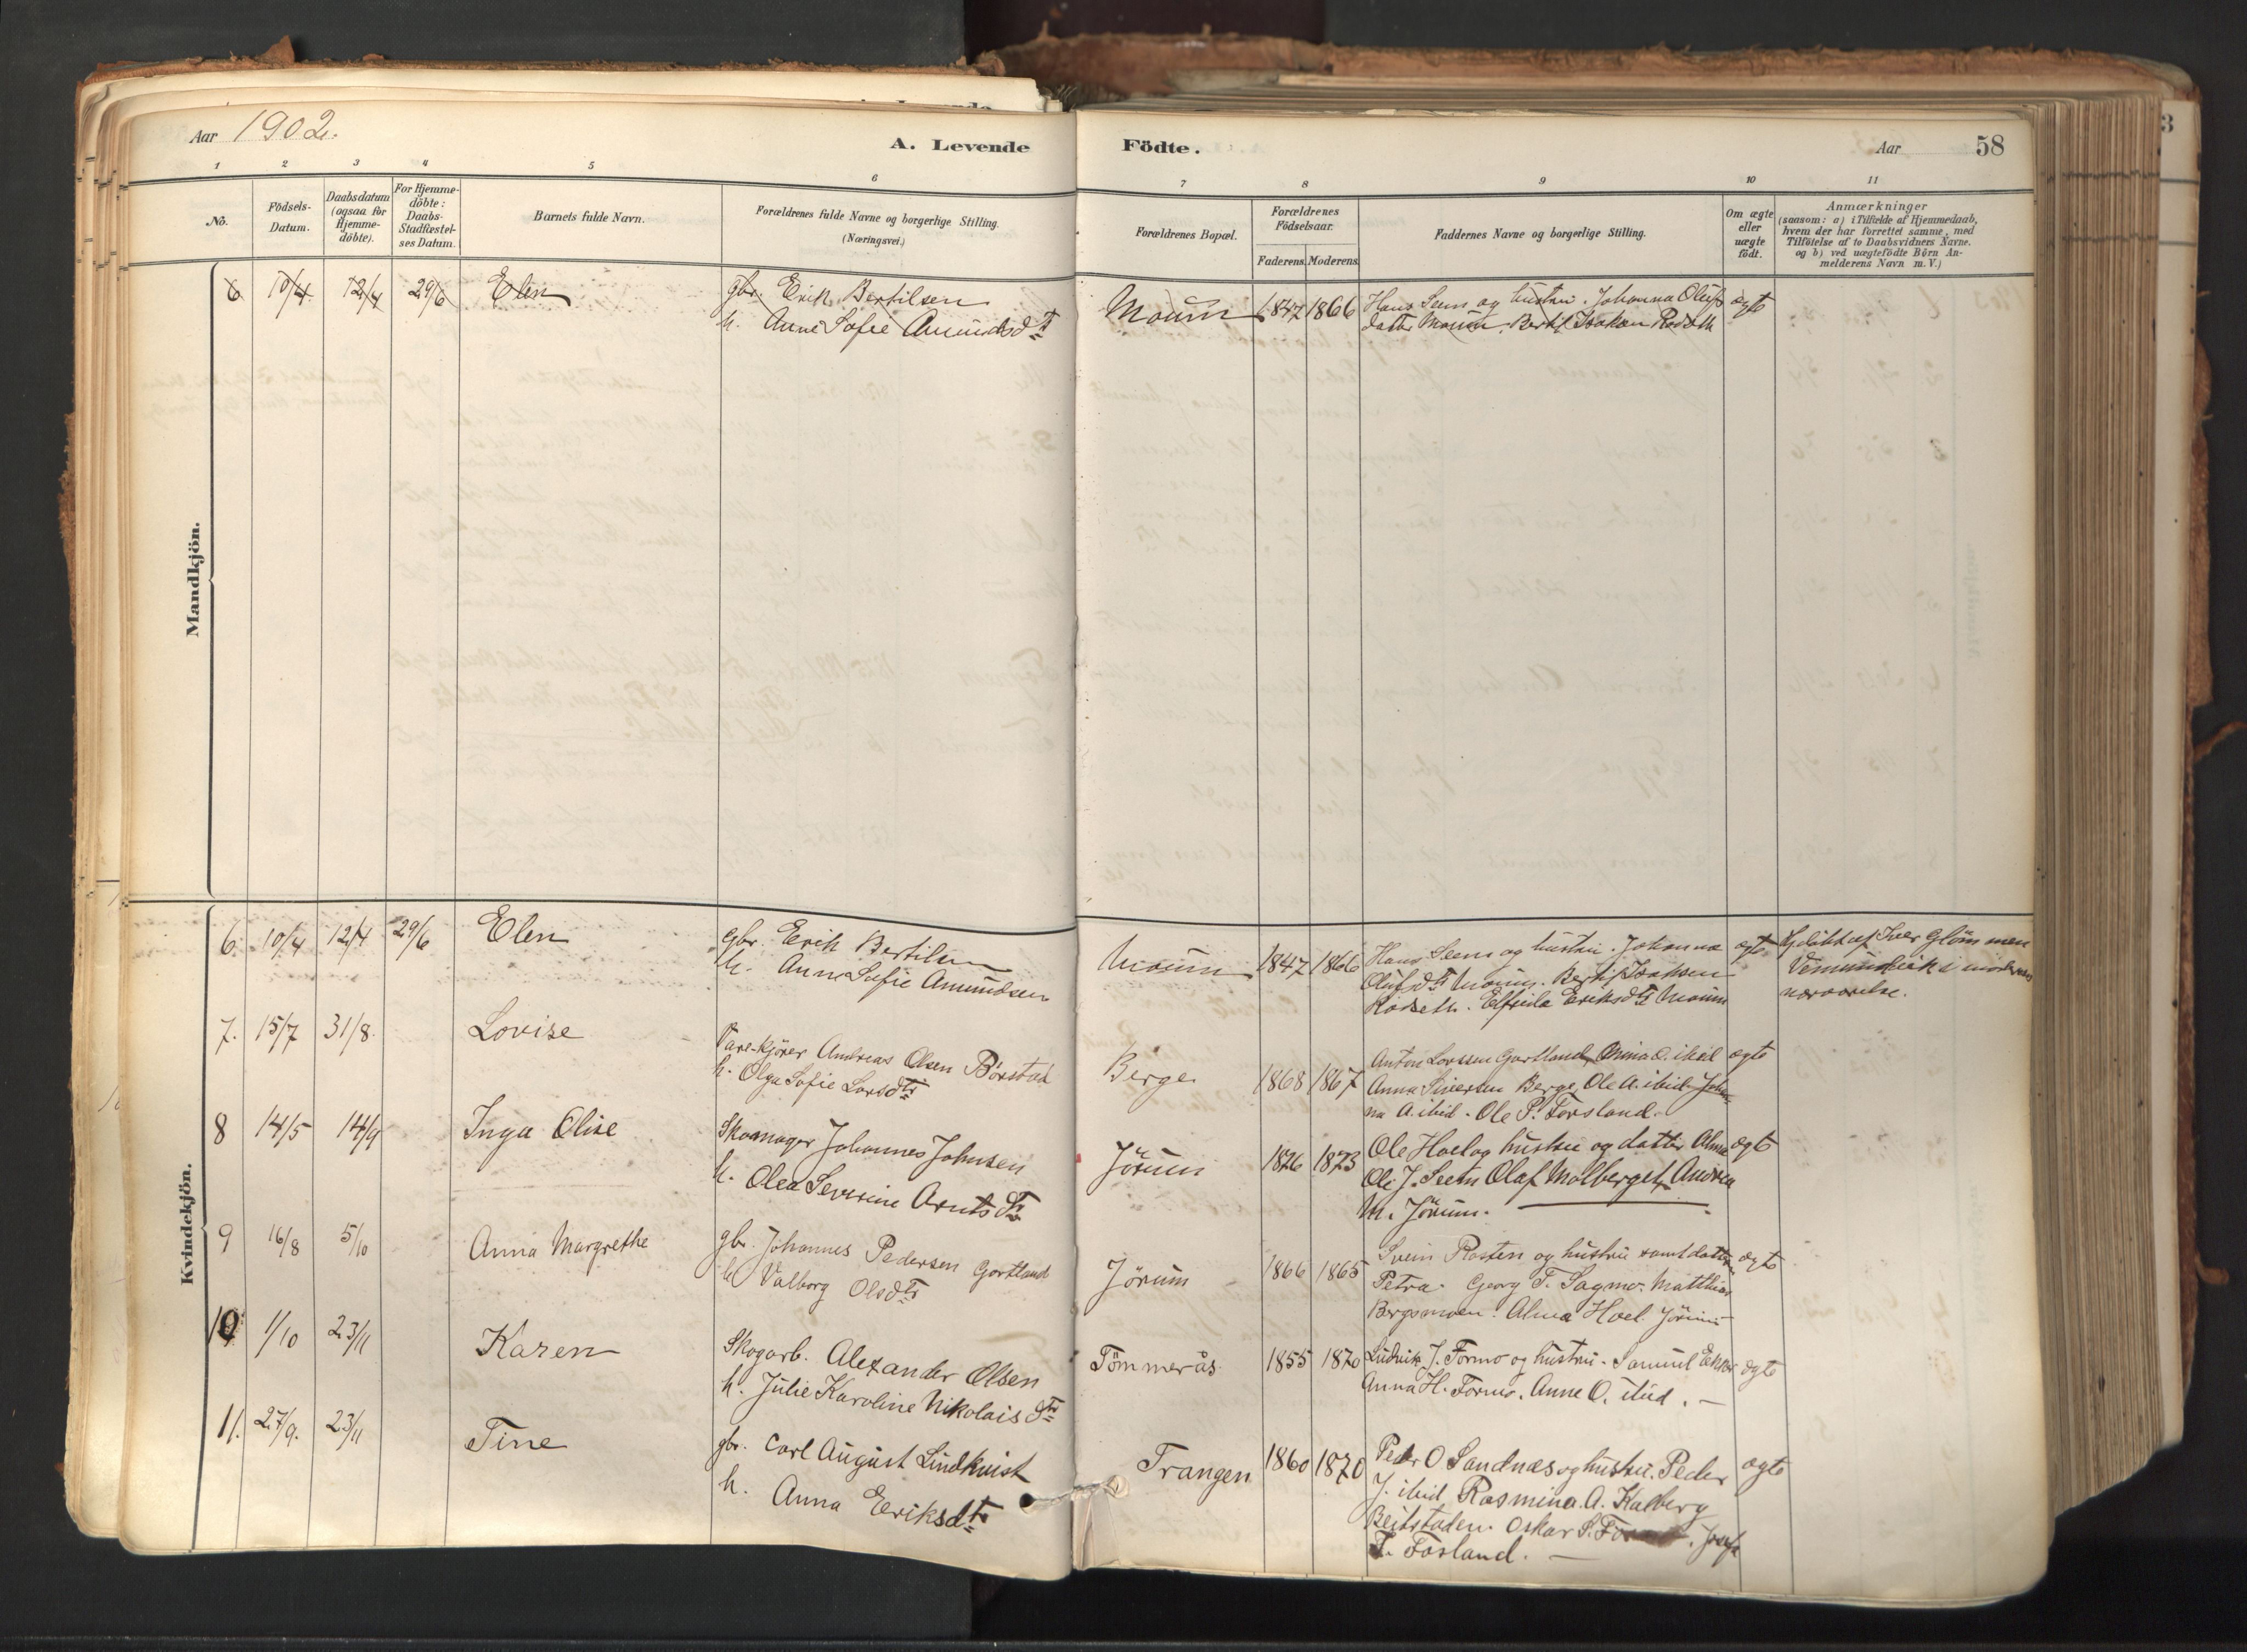 Aar 1902.
A. Levende
Födte.
Aar 58
1 2 3 4 5 6 7 8 9 10 11
No.
Födsels-
Datum.
Daabsdatum
(ogsaa for
Hjemme-
döbte).
For Hjemme-
döbte:
Daabs-
Stadfæstel-
ses Datum.
Barnets fulde Navn.
Forældrenes fulde Navne og borgerlige Stilling.
(Næringsvei.)
Forældrenes Bopæl.
Forældrenes
Födselsaar.
Faderens. Moderens.
Faddernes Navne og borgerlige Stilling.
Om ægte
eller
uægte
födt.
Anmærkninger
(saasom: a) i Tilfælde af Hjemmedaab,
hvem der har forrettet samme, med
Tilföielse af to Daabsvidners Navne.
og b) ved uægtefödte Börn An-
melderens Navn m. V.)
Mandkjön.
6 10/4 12/4 29/6 Elen
gbr. Erik Bertilsen
h. Anne Sofie Amundsdtr
Moum 1847 1866
Hans Seem og hustru. Johanna Olufs
datter Moum. Bertil Isaksen Rodseth
ægte
Kvindekjön.
6. 10/4 12/4 29/6 Elen
gbr. Erik Bertilsen
h. Anna Sofie Amundsen
Moum 1847 1866
Hans Seem og hustru. Johanna
Olufsdtr Moum. Bertil Isaksen
Rodseth. Elfrida Eriksdtr Moum
ægte
Hj.döbt af Iver Glömmen
Vemundvik i moderens
nærværelse.
7. 15/7 31/8. Lovise
Vare-kjörer Andreas Olsen Börstad
h. Olga Sofie Larsdtr
Berge 1868 1867
Anton Larssen Gartland, Mina O. ibid
Anna Sivertsen Berge, Ole A. ibid. Johan-
na A. ibid. Ole P. Forsland.
ægte
8 14/5 14/9 Inga Elise
Skomager Johannes Johnsen
h. Olea Severine Arntsdtr
Jörum 1826 1873
Ole Hoel og hustru og datter Alma
Ole J. Seem Olaf Molberget, Andrea
M. Jörum.
ægte
9 16/8 5/10 Anna Margrethe
gbr. Johannes Pedersen Gartland
h Valborg Olsdtr
Jörum 1866 1865
Svein Rosten og hustru samt datter
Petra. Georg T. Sagmo. Matthias
Bergsmoen. Alma Hoel Jörum
ægte
10 1/10 23/11 Karen
Skogarb. Alexander Olsen
h. Julie Karoline Nikolaisdtr
Tömmerås. 1855 1870
Ludvik J. Formo og hustru. Samuel Ekker
Anna H. Formo. Anne O. ibid.
ægte
11. 27/9. 23/11 Tine
gbr. Carl August Lindkvist
h. Anna Eeriksdtr
Trangen 1860 1870
Peder O Sandnæs og hustru. Peder
J. ibid Rasmina A. Kalberg
Beitstaden. Oskar S.
J. Fosland.
ægte